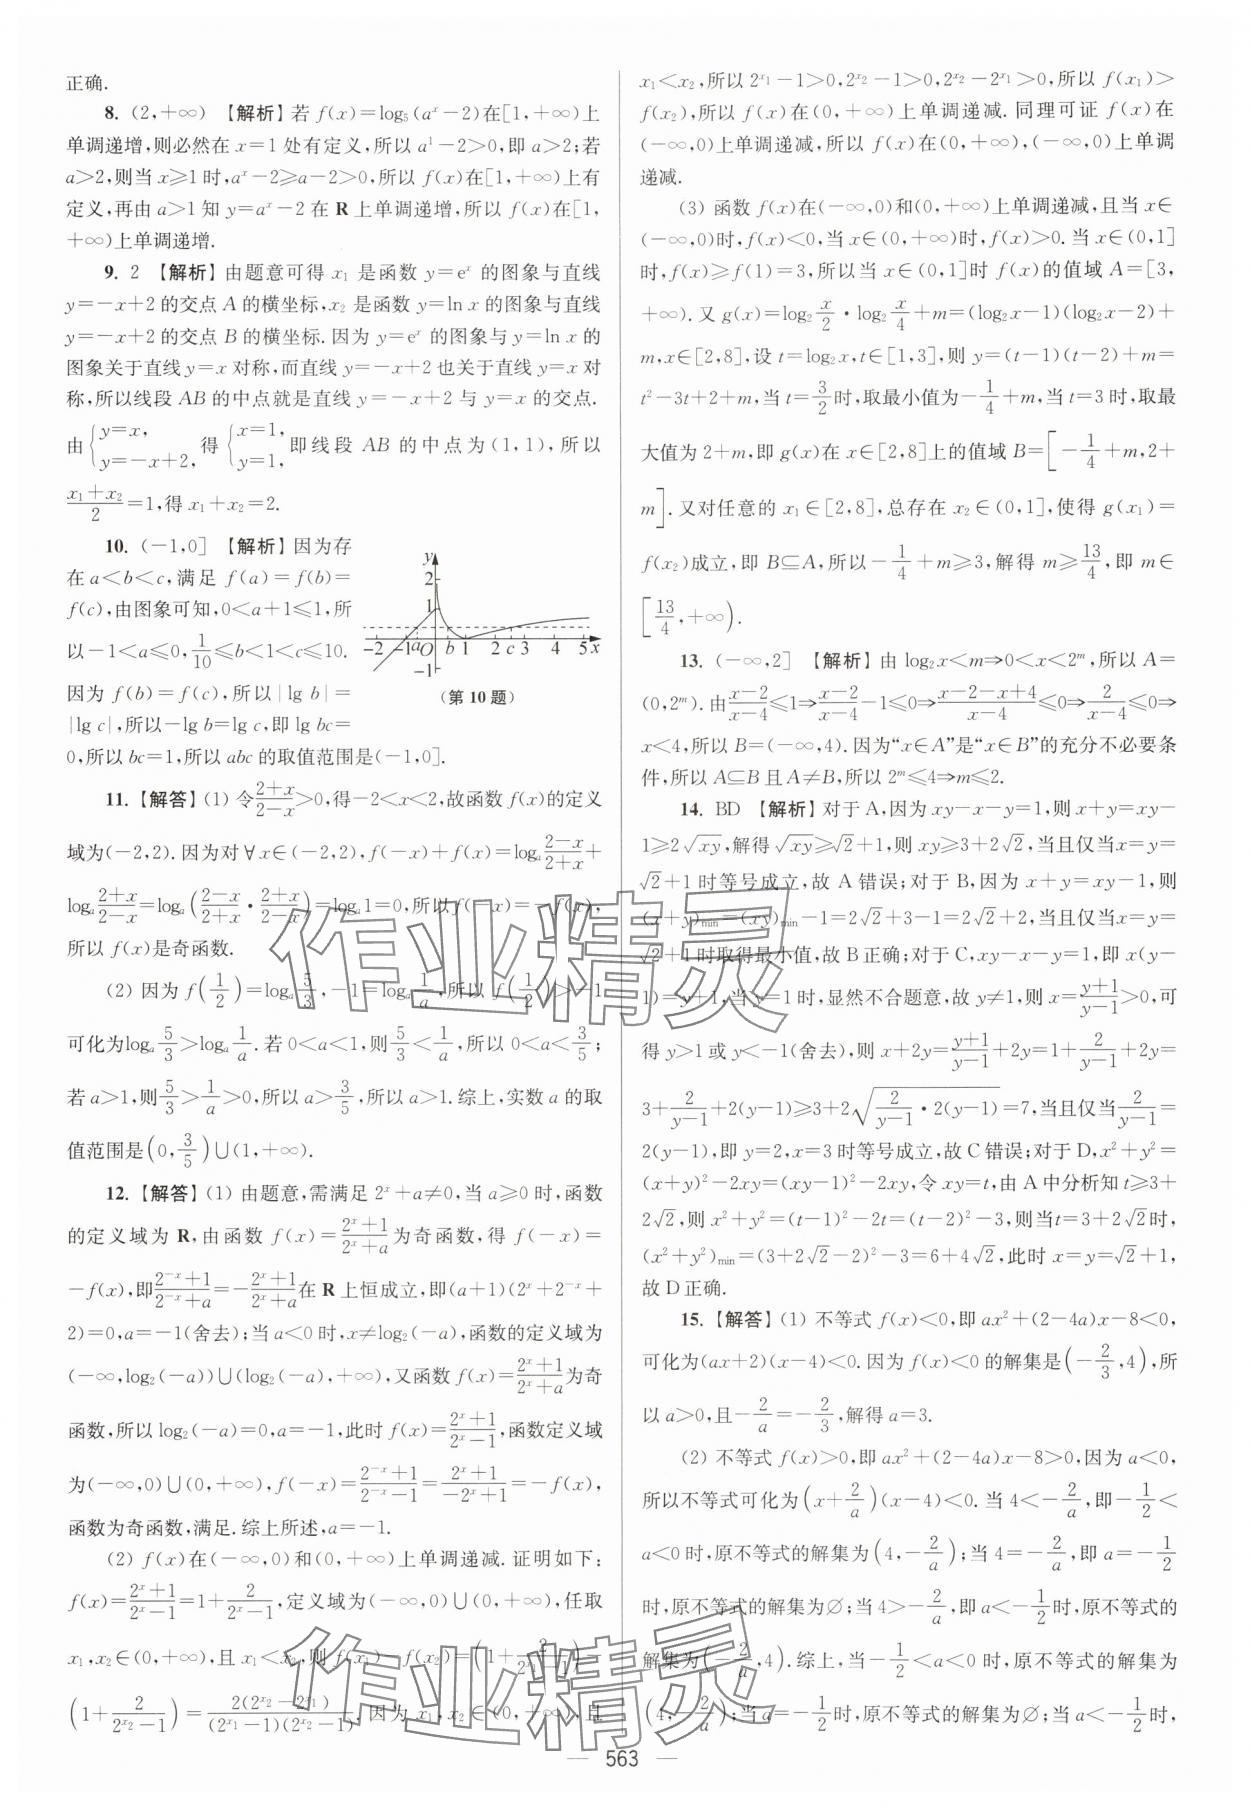 正确.
8. (2,+∞) 【解析】若 f(x)=log₅(aˣ-2)在[1,+∞)上
单调递增,则必然在 x=1 处有定义,所以 a¹-2>0,即 a>2;若
a>2,则当 x≥1 时,aˣ-2≥a-2>0,所以 f(x)在[1,+∞)上有
定义,再由 a>1 知 y=aˣ-2 在 R 上单调递增,所以 f(x)在[1,
+∞)上单调递增.
9. 2 【解析】由题意可得 x₁ 是函数 y=eˣ 的图象与直线
y=-x+2 的交点 A 的横坐标,x₂ 是函数 y=ln x 的图象与直线
y=-x+2 的交点 B 的横坐标.因为 y=eˣ 的图象与 y=ln x 的
图象关于直线 y=x 对称,而直线 y=-x+2 也关于直线 y=x 对
称,所以线段 AB 的中点就是直线 y=-x+2 与 y=x 的交点.
由{y=x, y=-x+2, 得{x=1, y=1, 即线段 AB 的中点为(1,1),所以
(x₁+x₂)/2=1,得 x₁+x₂=2.
10. (-1,0] 【解析】因为存
在 a<b<c,满足 f(a)=f(b)=
f(c),由图象可知,0<a+1≤1,所
以-1<a≤0,1/10≤b<1<c≤10.
因为 f(b)=f(c),所以|lg b|=
|lg c|,所以-lg b=lg c,即 lg bc=
0,所以 bc=1,所以 abc 的取值范围是(-1,0].
y
2
1
-2 -1 a O b 1 2 c 3 4 5 x
-1
(第 10 题)
11. 【解答】(1) 令(2+x)/(2-x)>0,得-2<x<2,故函数 f(x)的定义
域为(-2,2).因为对∀x∈(-2,2),f(-x)+f(x)=logₐ(2-x)/(2+x)+
logₐ(2+x)/(2-x)=logₐ((2-x)/(2+x)·(2+x)/(2-x))=logₐ1=0,所以 f(-x)=-f(x),
所以 f(x)是奇函数.
(2) 因为 f(1/2)=logₐ5/3,-1=logₐ1/a,所以 f(1/2)>-1
可化为logₐ5/3>logₐ1/a.若 0<a<1,则5/3<1/a,所以 0<a<3/5;
若 a>1,则5/3>1/a>0,所以 a>3/5,所以 a>1.综上,实数 a 的取
值范围是(0,3/5)∪(1,+∞).
12. 【解答】(1) 由题意,需满足 2ˣ+a≠0,当 a≥0 时,函数
的定义域为 R,由函数 f(x)=(2ˣ+1)/(2ˣ+a)为奇函数,得 f(-x)=
-f(x),即(2⁻ˣ+1)/(2⁻ˣ+a)=-(2ˣ+1)/(2ˣ+a)在 R 上恒成立,即(a+1)(2ˣ+2⁻ˣ+
2)=0,a=-1(舍去);当 a<0 时,x≠log₂(-a),函数的定义域为
(-∞,log₂(-a))∪(log₂(-a),+∞),又函数 f(x)=(2ˣ+1)/(2ˣ+a)为奇
函数,所以 log₂(-a)=0,a=-1,此时 f(x)=(2ˣ+1)/(2ˣ-1),函数定义域
为(-∞,0)∪(0,+∞),f(-x)=(2⁻ˣ+1)/(2⁻ˣ-1)=(2ˣ+1)/(-2ˣ+1)=-f(x),
函数为奇函数,满足.综上所述,a=-1.
(2) f(x)在(-∞,0)和(0,+∞)上单调递减.证明如下:
f(x)=(2ˣ+1)/(2ˣ-1)=1+2/(2ˣ-1),定义域为(-∞,0)∪(0,+∞),任取
x₁,x₂∈(0,+∞),且 x₁<x₂,则 f(x₁)-f(x₂)=(1+2/(2^x₁-1))-
(1+2/(2^x₂-1))=2(2^x₂-2^x₁)/((2^x₁-1)(2^x₂-1)),因为 x₁,x₂∈(0,+∞),
x₁<x₂,所以 2^x₁-1>0,2^x₂-1>0,2^x₂-2^x₁>0,所以 f(x₁)>
f(x₂),所以 f(x)在(0,+∞)上单调递减.同理可证 f(x)在
(-∞,0)上单调递减,所以 f(x)在(0,+∞),(-∞,0)上单调
递减.
(3) 函数 f(x)在(-∞,0)和(0,+∞)上单调递减,且当 x∈
(-∞,0)时,f(x)<0,当 x∈(0,+∞)时,f(x)>0.当 x∈(0,1]
时,f(x)≥f(1)=3,所以当 x∈(0,1]时 f(x)的值域 A=[3,
+∞).又 g(x)=log₂x/2·log₂x/4+m=(log₂x-1)(log₂x-2)+
m,x∈[2,8],设 t=log₂x,t∈[1,3],则 y=(t-1)(t-2)+m=
t²-3t+2+m,当 t=3/2时,取最小值为-1/4+m,当 t=3 时,取最
大值为 2+m,即 g(x)在 x∈[2,8]上的值域 B=[-1/4+m,2+
m].又对任意的 x₁∈[2,8],总存在 x₂∈(0,1],使得 g(x₁)=
f(x₂)成立,即 B⊆A,所以-1/4+m≥3,解得 m≥13/4,即 m∈
[13/4,+∞).
13. (-∞,2] 【解析】由 log₂x<m⇒0<x<2ᵐ,所以 A=
(0,2ᵐ).由(x-2)/(x-4)≤1⇒(x-2)/(x-4)-1≤0⇒(x-2-x+4)/(x-4)≤0⇒2/(x-4)≤0⇒
x<4,所以 B=(-∞,4).因为“x∈A”是“x∈B”的充分不必要条
件,所以 A⊆B 且 A≠B,所以 2ᵐ≤4⇒m≤2.
14. BD 【解析】对于 A,因为 xy-x-y=1,则 x+y=xy-
1≥2√xy,解得√xy≥√2+1,则 xy≥3+2√2,当且仅当x=y=
√2+1 时等号成立,故 A 错误;对于 B,因为 x+y=xy-1,则
(x+y)min=(xy)min-1=2√2+3-1=2√2+2,当且仅当x=y=
√2+1时取得最小值,故 B正确;对于 C,xy-x-y=1,即 x(y-
1)=y+1,当 y=1 时,显然不合题意,故 y≠1,则 x=(y+1)/(y-1)>0,可
得 y>1 或 y<-1(舍去),所以 x+2y=(y+1)/(y-1)+2y=1+2/(y-1)+2y=
3+2/(y-1)+2(y-1)≥3+2√(2/(y-1)·2(y-1))=7,当且仅当2/(y-1)=
2(y-1),即 y=2,x=3 时等号成立,故 C错误;对于 D,x²+y²=
(x+y)²-2xy=(xy-1)²-2xy,令 xy=t,由 A 中分析知 t≥3+
2√2,则 x²+y²=(t-1)²-2t=(t-2)²-3,则当t=3+2√2时,
(x²+y²)min=(3+2√2-2)²-3=6+4√2,此时 x=y=√2+1,
故 D正确.
15. 【解答】(1) 不等式 f(x)<0,即 ax²+(2-4a)x-8<0,
可化为(ax+2)(x-4)<0.因为 f(x)<0 的解集是(-2/3,4),所
以 a>0,且-2/a=-2/3,解得 a=3.
(2) 不等式 f(x)>0,即 ax²+(2-4a)x-8>0,因为 a<0,
所以不等式可化为(x+2/a)(x-4)<0.当 4<-2/a,即-1/2<
a<0 时,原不等式的解集为(4,-2/a);当 4=-2/a,即 a=-1/2
时,原不等式的解集为∅;当 4>-2/a,即 a<-1/2时,原不等式的
解集为(-2/a,4).综上,当-1/2<a<0 时,原不等式的解集为
(4,-2/a);当 a=-1/2时,原不等式的解集为∅;当 a<-1/2时,
563
作业精灵
作业精灵